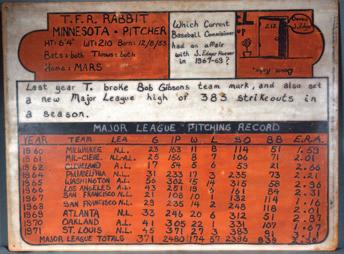 T.F.R. RABBIT
MINNESOTA • PITCHER
HT: 6'4" WT: 210 Born: 12/8/53
Bats: both Throws: both
Home: MARS
Which Current
Baseball Commissioner
had an affair
with J. Edgar Hoover
in 1967-63?
Last year T. broke Bob Gibsons team mark, and also set
a new Major League high of 383 strikeouts in
a season.
MAJOR LEAGUE PITCHING RECORD
YEAR TEAM LEA G IP W L SO BB E.R.A.
1960 MILWAUKEE N.L. 8 114 51
1961 MIL-CLEVE. NL-AL. 25 156 8 7 106 71 2.01
1962 CLEVELAND A.L. 17 54 5 6 53 21 2.56
1964 PHILADELPHIA N.L. 31 233 17 3 235 73 2.21
1965 WASHINGTON A.L. 302 14 315
1966 LOS ANGELES A.L. 43 251 161 84 2.31
1967 SAN FRANCISCO N.L. 21 108 10 1 132 114
1968 SAN FRANCISCO N.L. 29 235 14 2 248 118
1969 ATLANTA N.L. 33 246 20 6 312 51
1970 OAKLAND A.L. 41 305 22 1 331 107
1971 ST. LOUIS N.L. 45 371 27 3 383 91
MAJOR LEAGUE TOTALS 371 2480 174 57 2396 839